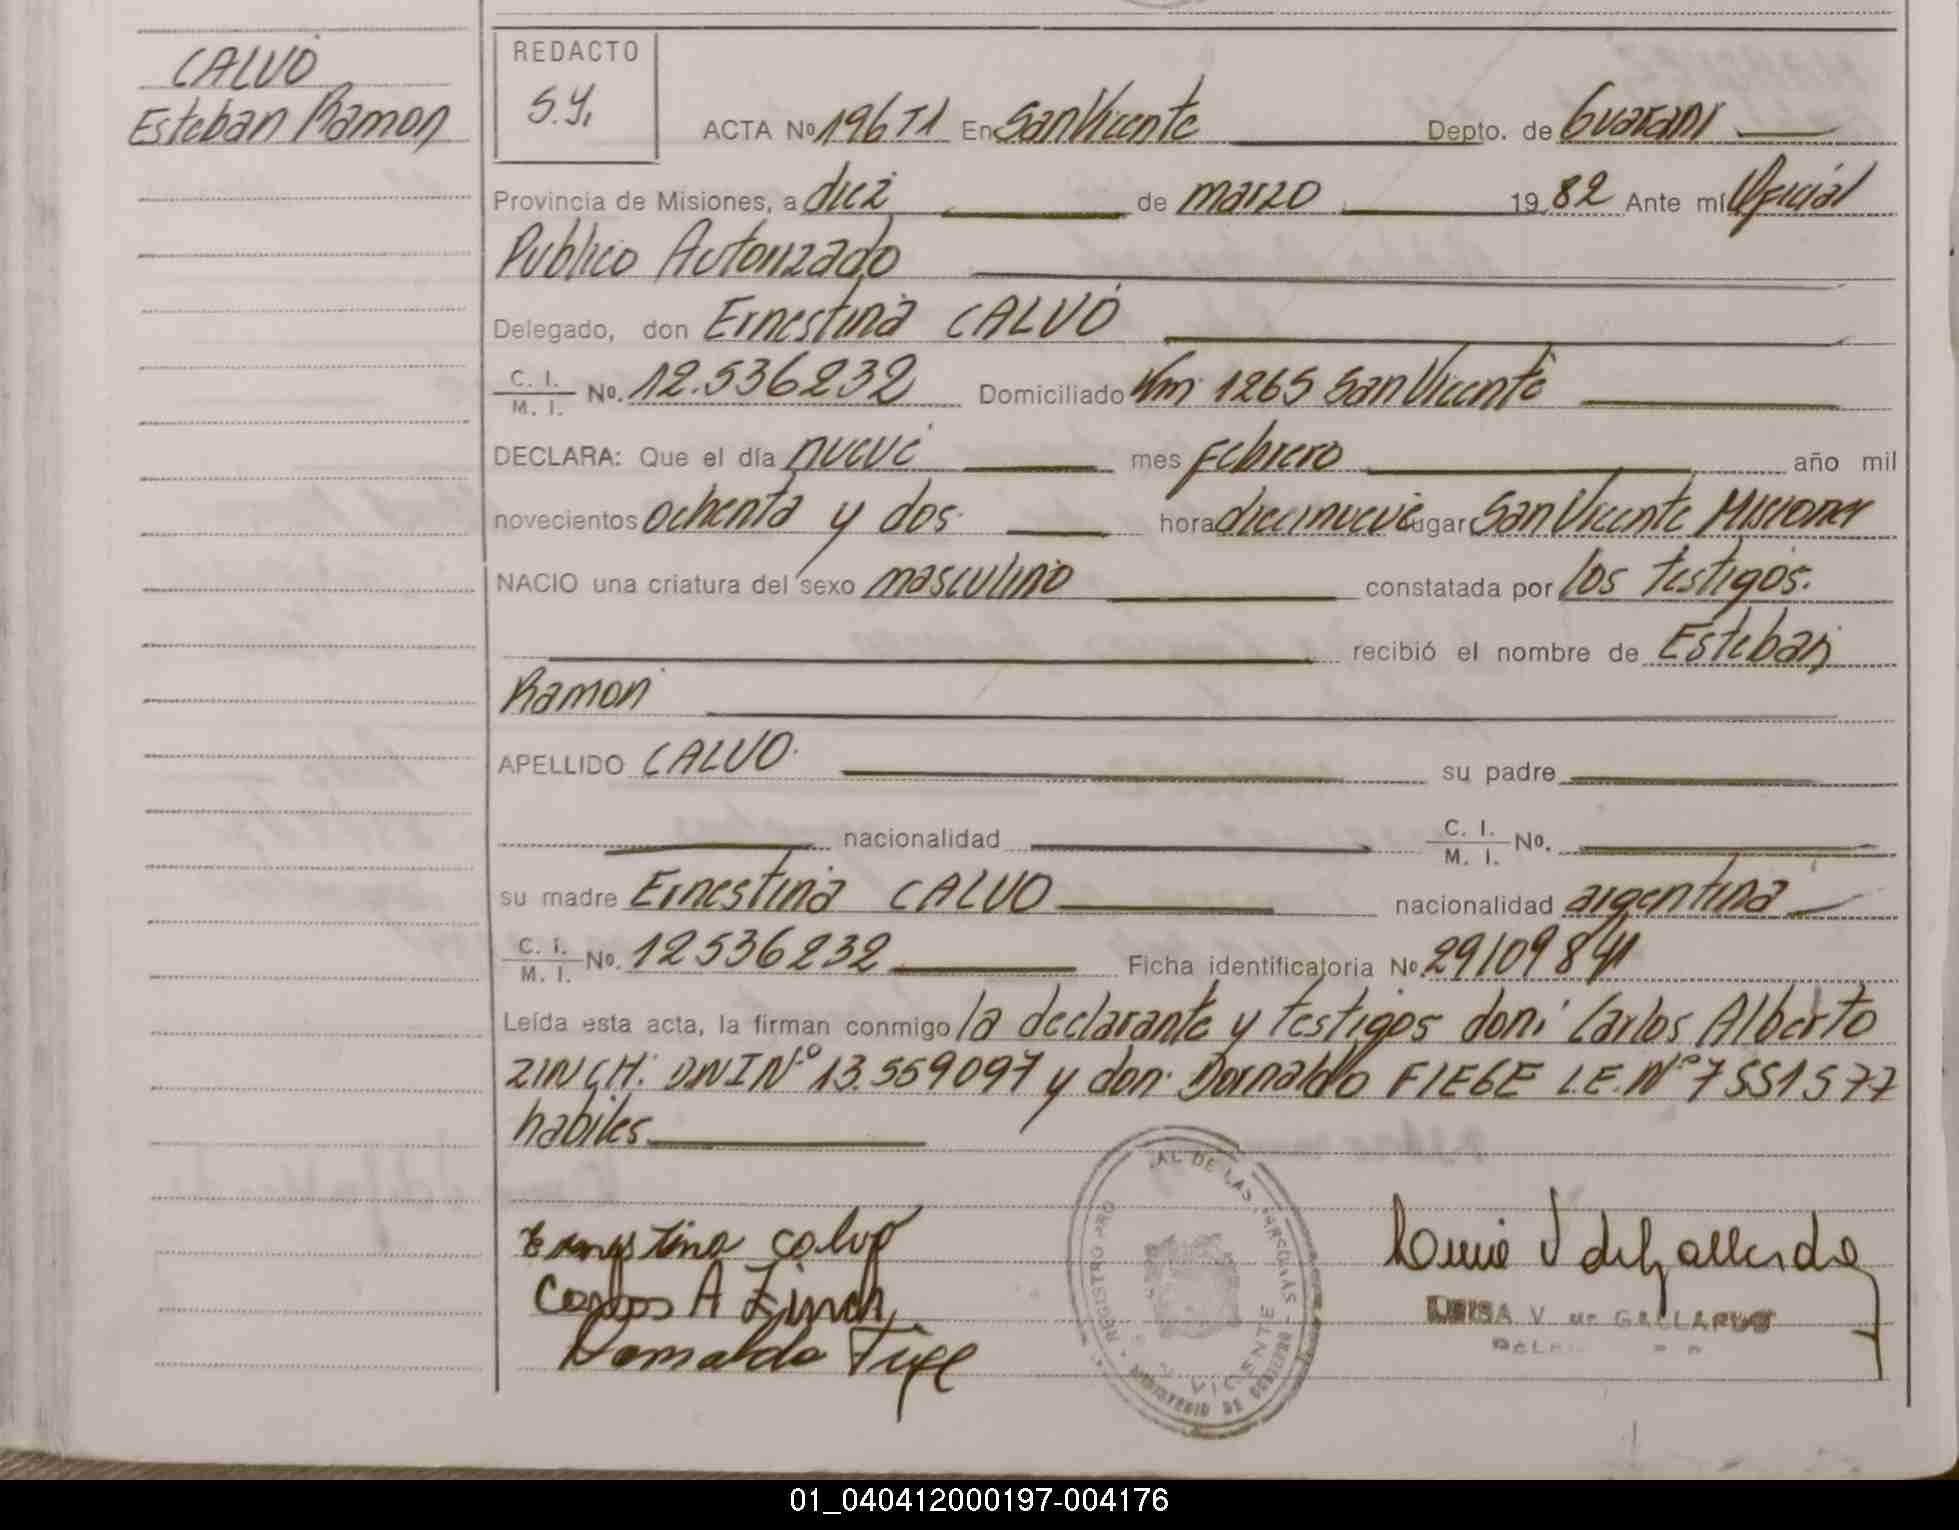 CALVO
Esteban Ramon
REDACTO
S.Y.
ACTA Nº 196 T1 En San Vicente Depto. de Guarani
Provincia de Misiones, a diez de marzo 1982 Ante mí Oficial
Publico Autorizado
Delegado, don Ernestina CALVO
C. I. / M. I. No. 12.536232 Domiciliado Km 1265 San Vicente
DECLARA: Que el día nueve mes Febrero año mil
novecientos ochenta y dos hora diecinueve lugar San Vicente Misiones
NACIO una criatura del sexo masculino constatada por los testigos.
recibió el nombre de Esteban
Ramon
APELLIDO CALVO. su padre
nacionalidad C. I. / M. I. No.
su madre Ernestina CALVO nacionalidad argentina
C. I. / M. I. No. 12536232 Ficha identificatoria No 29109841
Leída esta acta, la firman conmigo la declarante y testigos don: Carlos Alberto
ZINCH: DNI Nº 13.559097 y don: Dornaldo FIEGE L.E. Nº 7551577
habiles
Ernestina calvo
Carlos A Zinch
Dornaldo
V de GALLARDO
REGISTRO AL DE LAS PERSONAS
VICENTE
MINISTERIO DE GOBIERNO
01_040412000197-004176